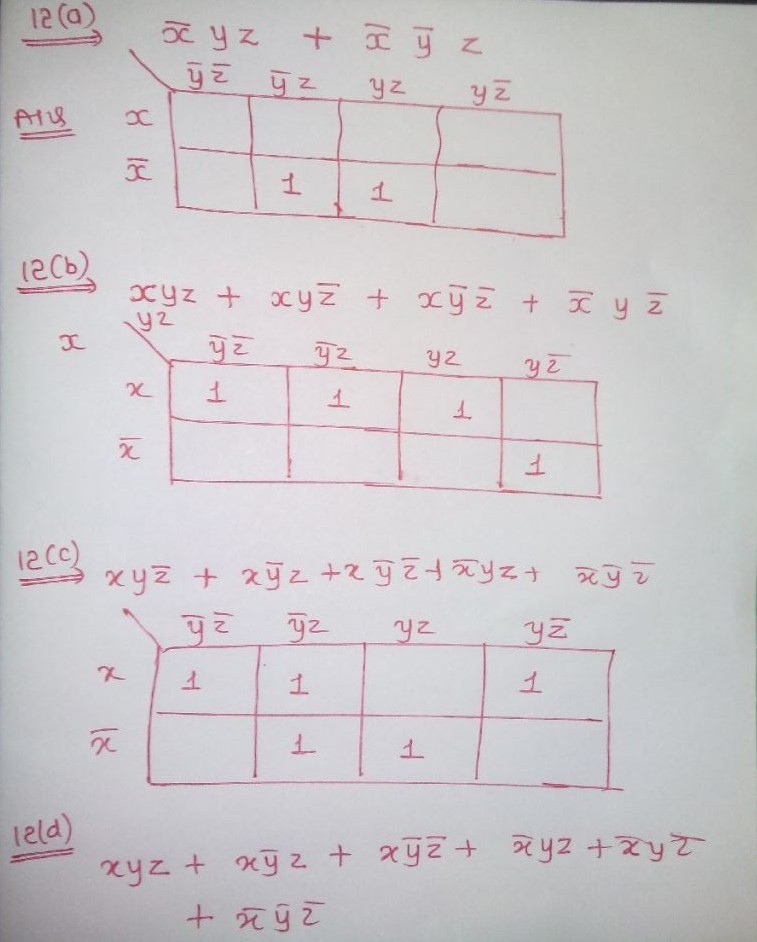 12(a) x̅ y z + x̅ y̅ z
y̅ z̅ y̅ z yz y z̅
Ans x
x̅ 1 1
12(b) xyz + xyz̅ + xy̅ z̅ + x̅ y z̅
yz
x y̅ z̅ y̅z yz yz̅
x 1 1 1
x̅ 1
12(c) xyz̅ + xy̅z + x y̅ z̅ + x̅yz + x̅ y̅ z̅
y̅ z̅ y̅z yz yz̅
x 1 1 1
x̅ 1 1
12(d) xyz + xy̅z + xy̅z̅ + x̅yz + x̅yz̅
+ x̅ y̅ z̅